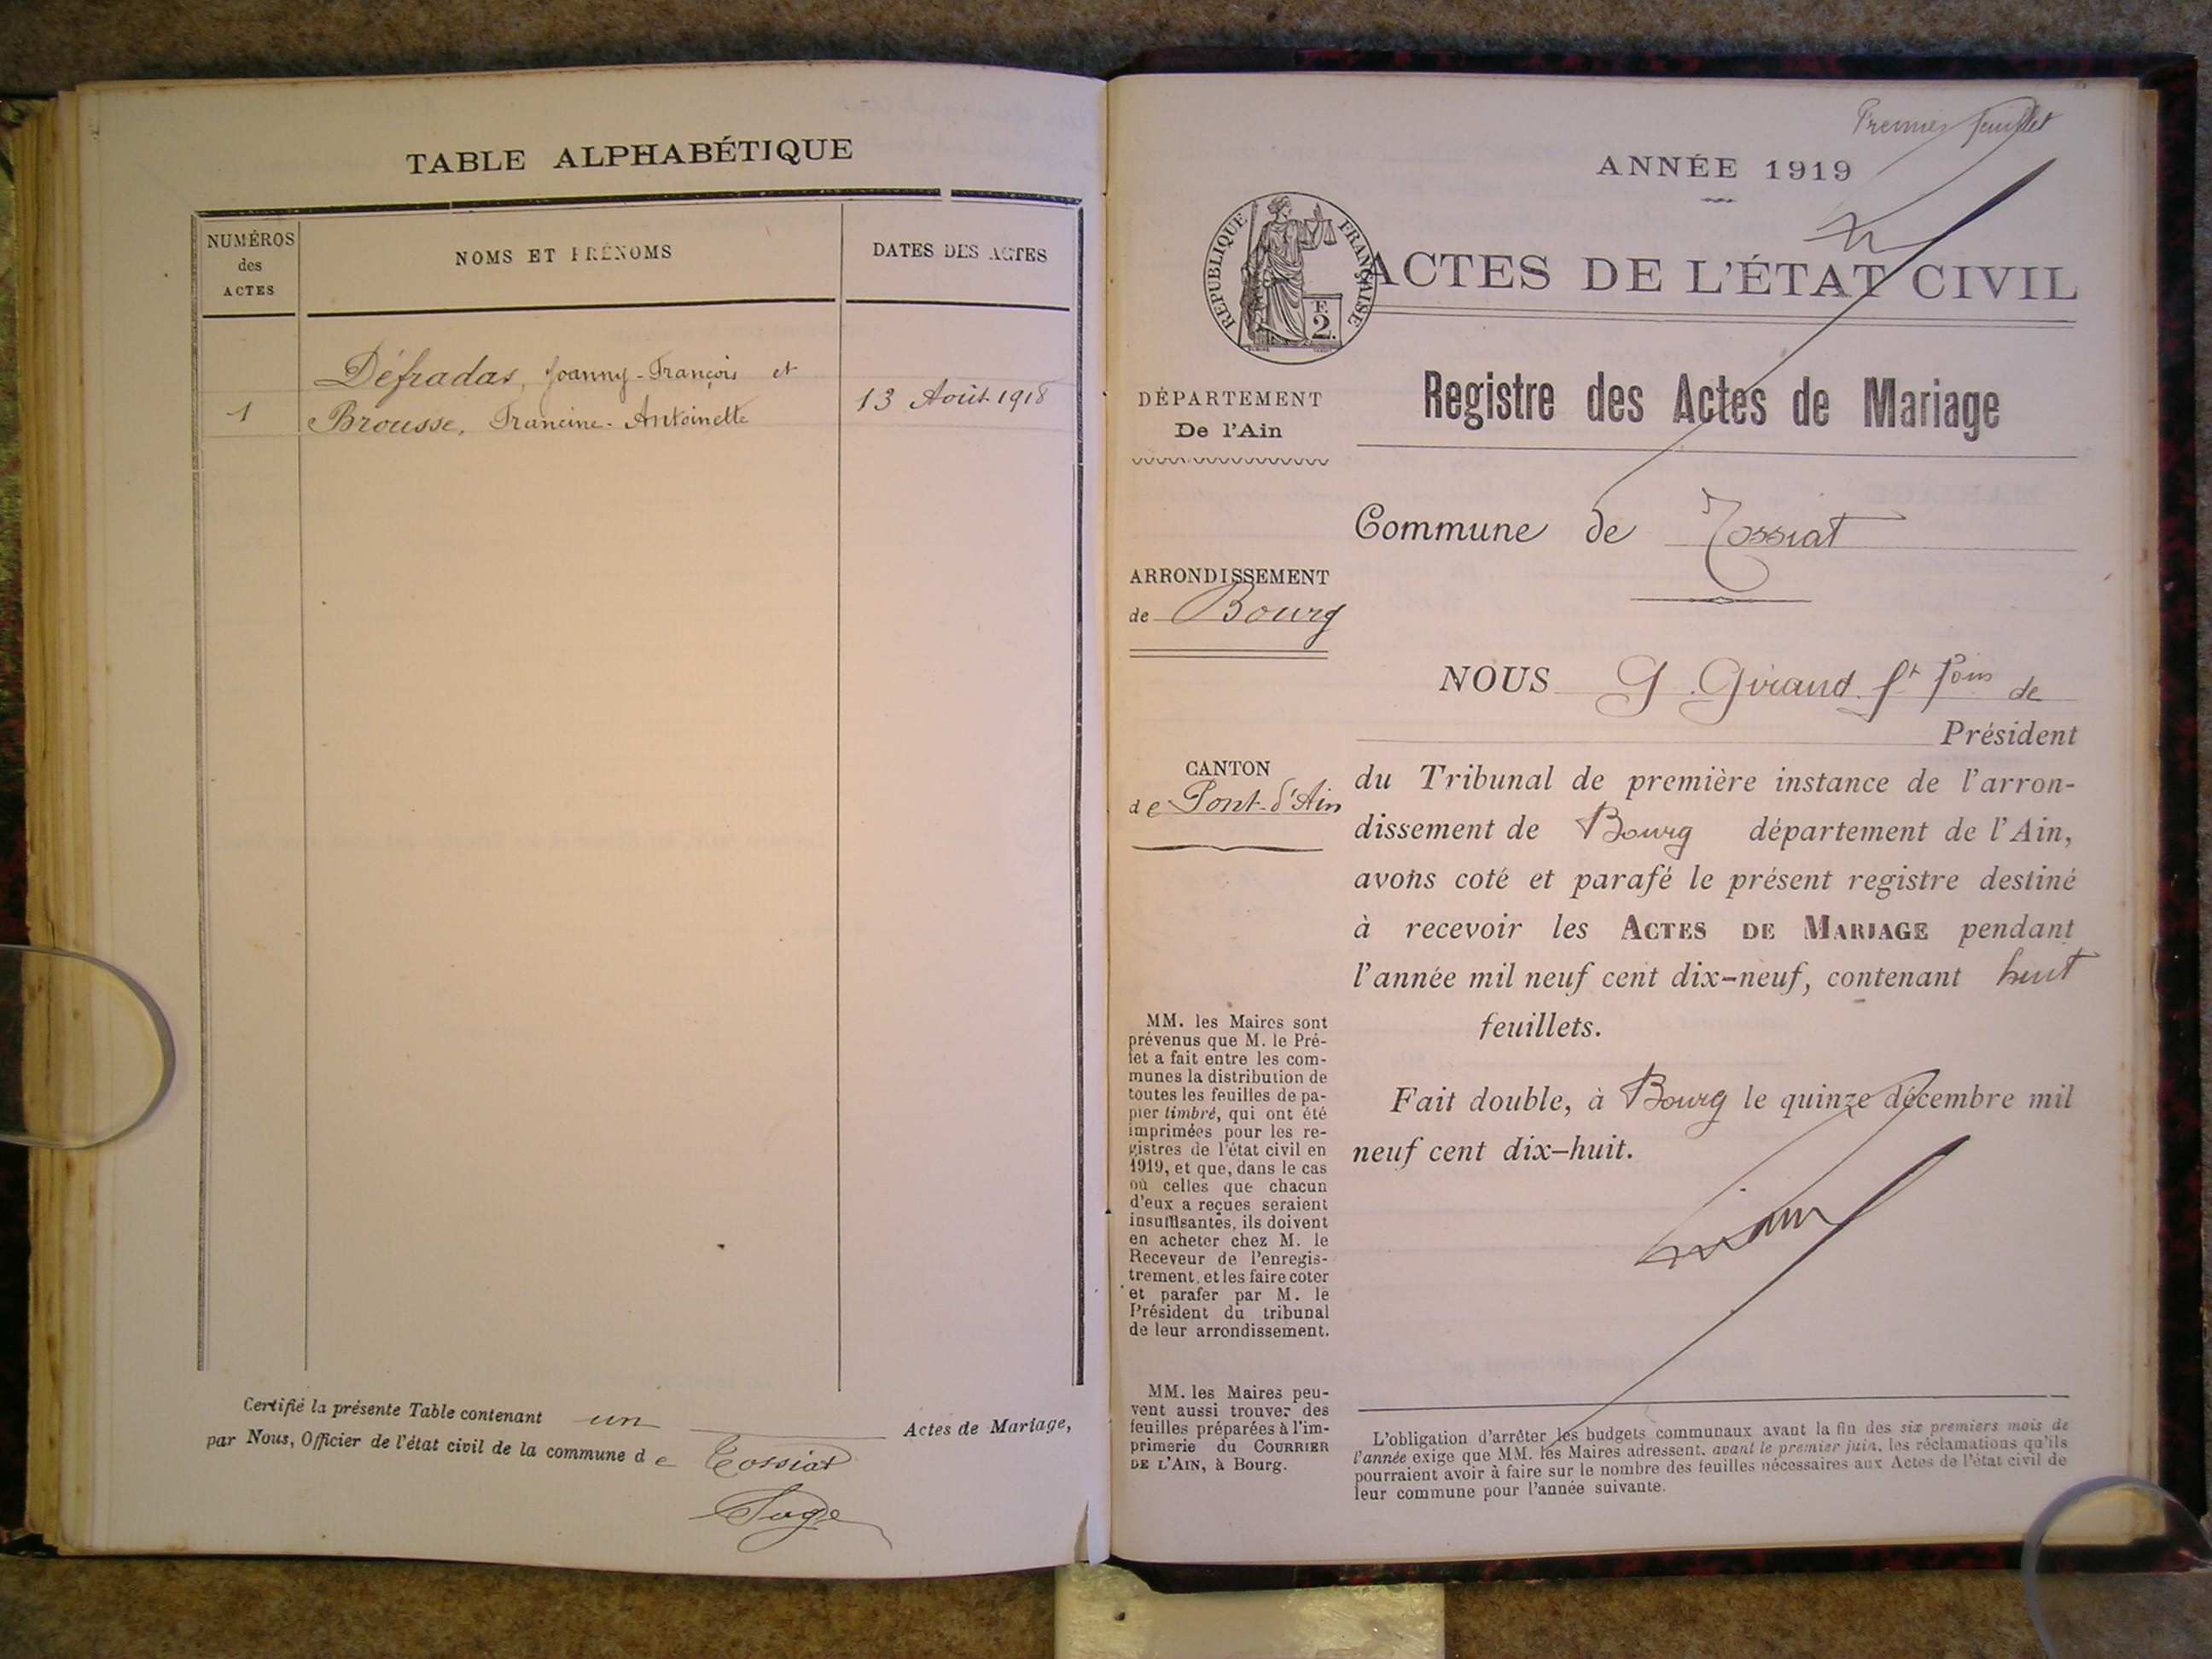 TABLE ALPHABÉTIQUE
NUMÉROS
des
ACTES
NOMS ET PRÉNOMS
DATES DES ACTES
Défradas, Joanny-François et
1
Brousse, Francine-Antoinette
13 Août 1918
Certifié la présente Table contenant un Actes de Mariage,
par Nous, Officier de l'état civil de la commune de Tossiat
Premier feuillet
ANNÉE 1919
RÉPUBLIQUE FRANÇAISE
F.
2.
ACTES DE L'ÉTAT CIVIL
Registre des Actes de Mariage
DÉPARTEMENT
De l'Ain
Commune de Tossiat
ARRONDISSEMENT
de Bourg
NOUS G. Giraud de
Président
CANTON
de Pont-d'Ain
du Tribunal de première instance de l'arron-
dissement de Bourg département de l'Ain,
avons coté et parafé le présent registre destiné
à recevoir les ACTES DE MARIAGE pendant
l'année mil neuf cent dix-neuf, contenant huit
feuillets.
Fait double, à Bourg le quinze décembre mil
neuf cent dix-huit.
MM. les Maires sont
prévenus que M. le Pré-
fet a fait entre les com-
munes la distribution de
toutes les feuilles de pa-
pier timbré, qui ont été
imprimées pour les re-
gistres de l'état civil en
1919, et que, dans le cas
où celles que chacun
d'eux a reçues seraient
insuffisantes, ils doivent
en acheter chez M. le
Receveur de l'enregis-
trement, et les faire coter
et parafer par M. le
Président du tribunal
de leur arrondissement.
MM. les Maires peu-
vent aussi trouver des
feuilles préparées à l'im-
primerie du COURRIER
DE L'AIN, à Bourg.
L'obligation d'arrêter les budgets communaux avant la fin des six premiers mois de
l'année exige que MM. les Maires adressent, avant le premier juin, les réclamations qu'ils
pourraient avoir à faire sur le nombre des feuilles nécessaires aux Actes de l'état civil de
leur commune pour l'année suivante.